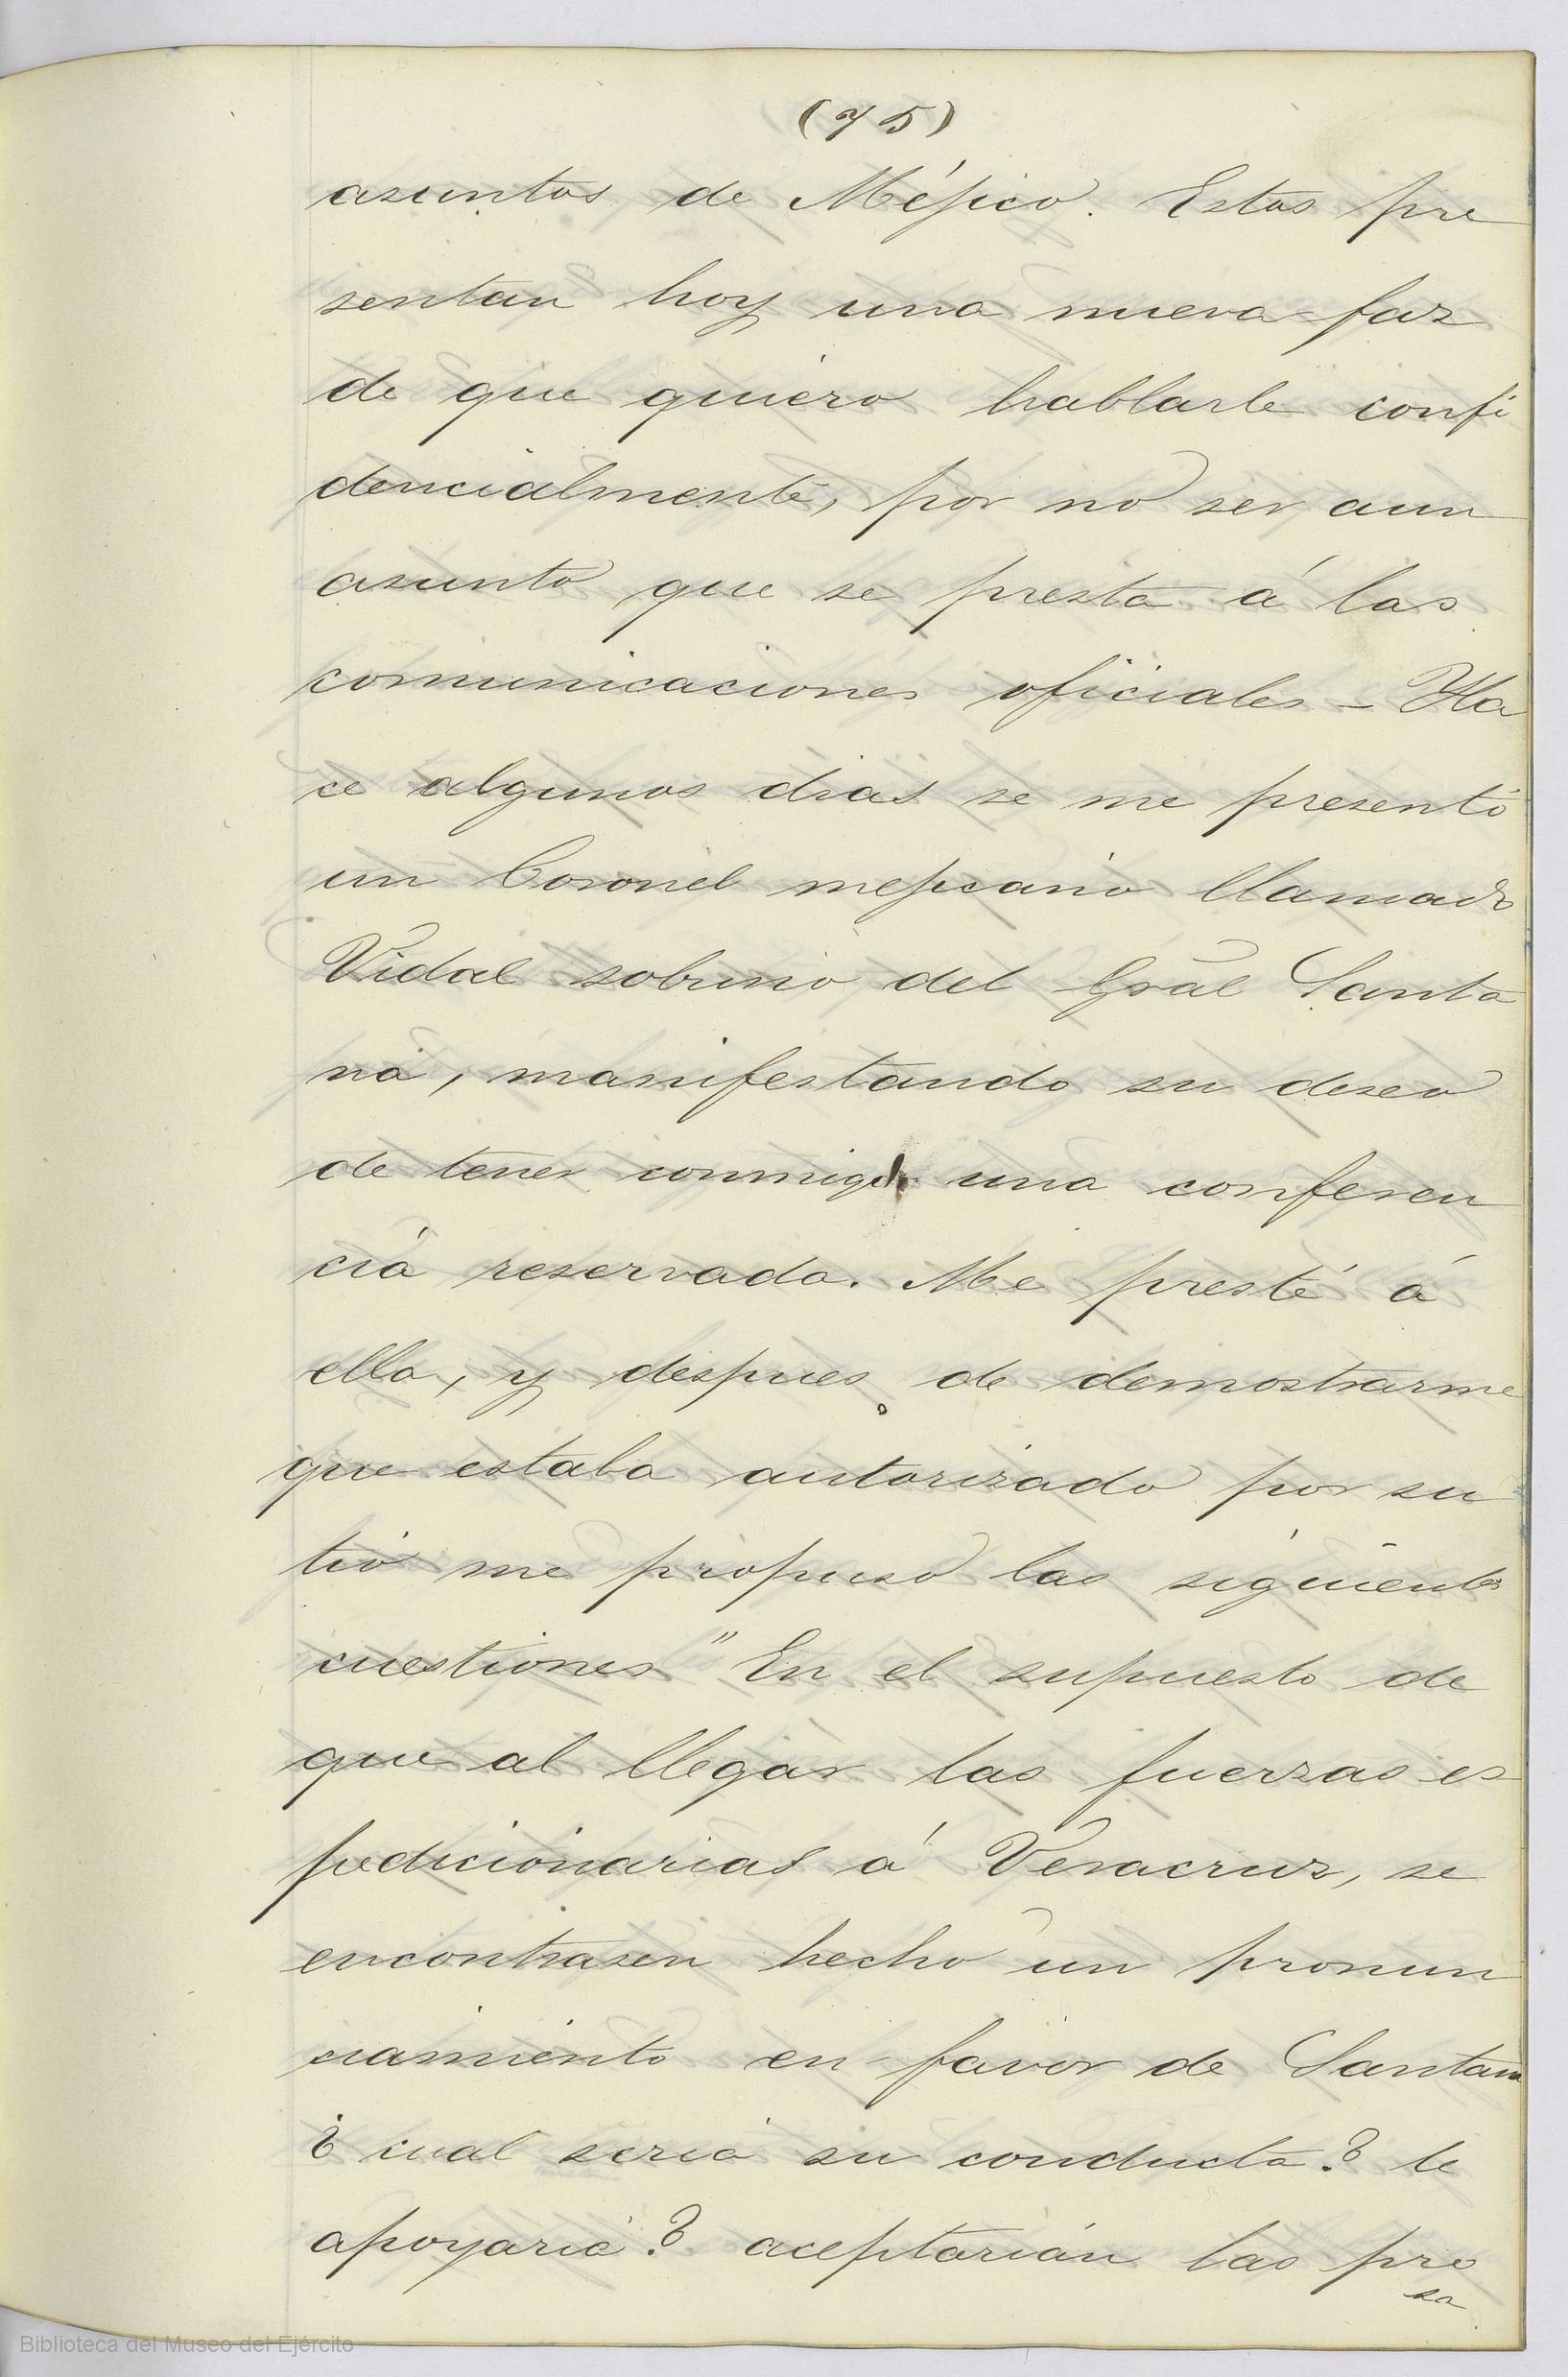 (75)
asuntos de Méjico. Estos pre
sentan hoy una nueva faz
de que quiero hablarle confi
dencialmente, por no ser aun
asunto que se presta á las
comunicaciones oficiales - Ha
ce algunos dias se me presentó
un Coronel mejicano llamado
Vidal sobrino del Gral Santa
na, manifestando su deseo
de tener conmigo una conferen
cia reservada. Me presté á
ella, y despues de demostrarme
que estaba autorizado por su
tio me propuso las siguientes
cuestiones " En el supuesto de
que al llegar las fuerzas es
pedicionarias á Veracruz, se
encontrasen hecho un pronun
ciamiento en favor de Santana
¿ cual seria su conducta? le
apoyaria? aceptarián las pro
sa
Biblioteca del Museo del Ejército